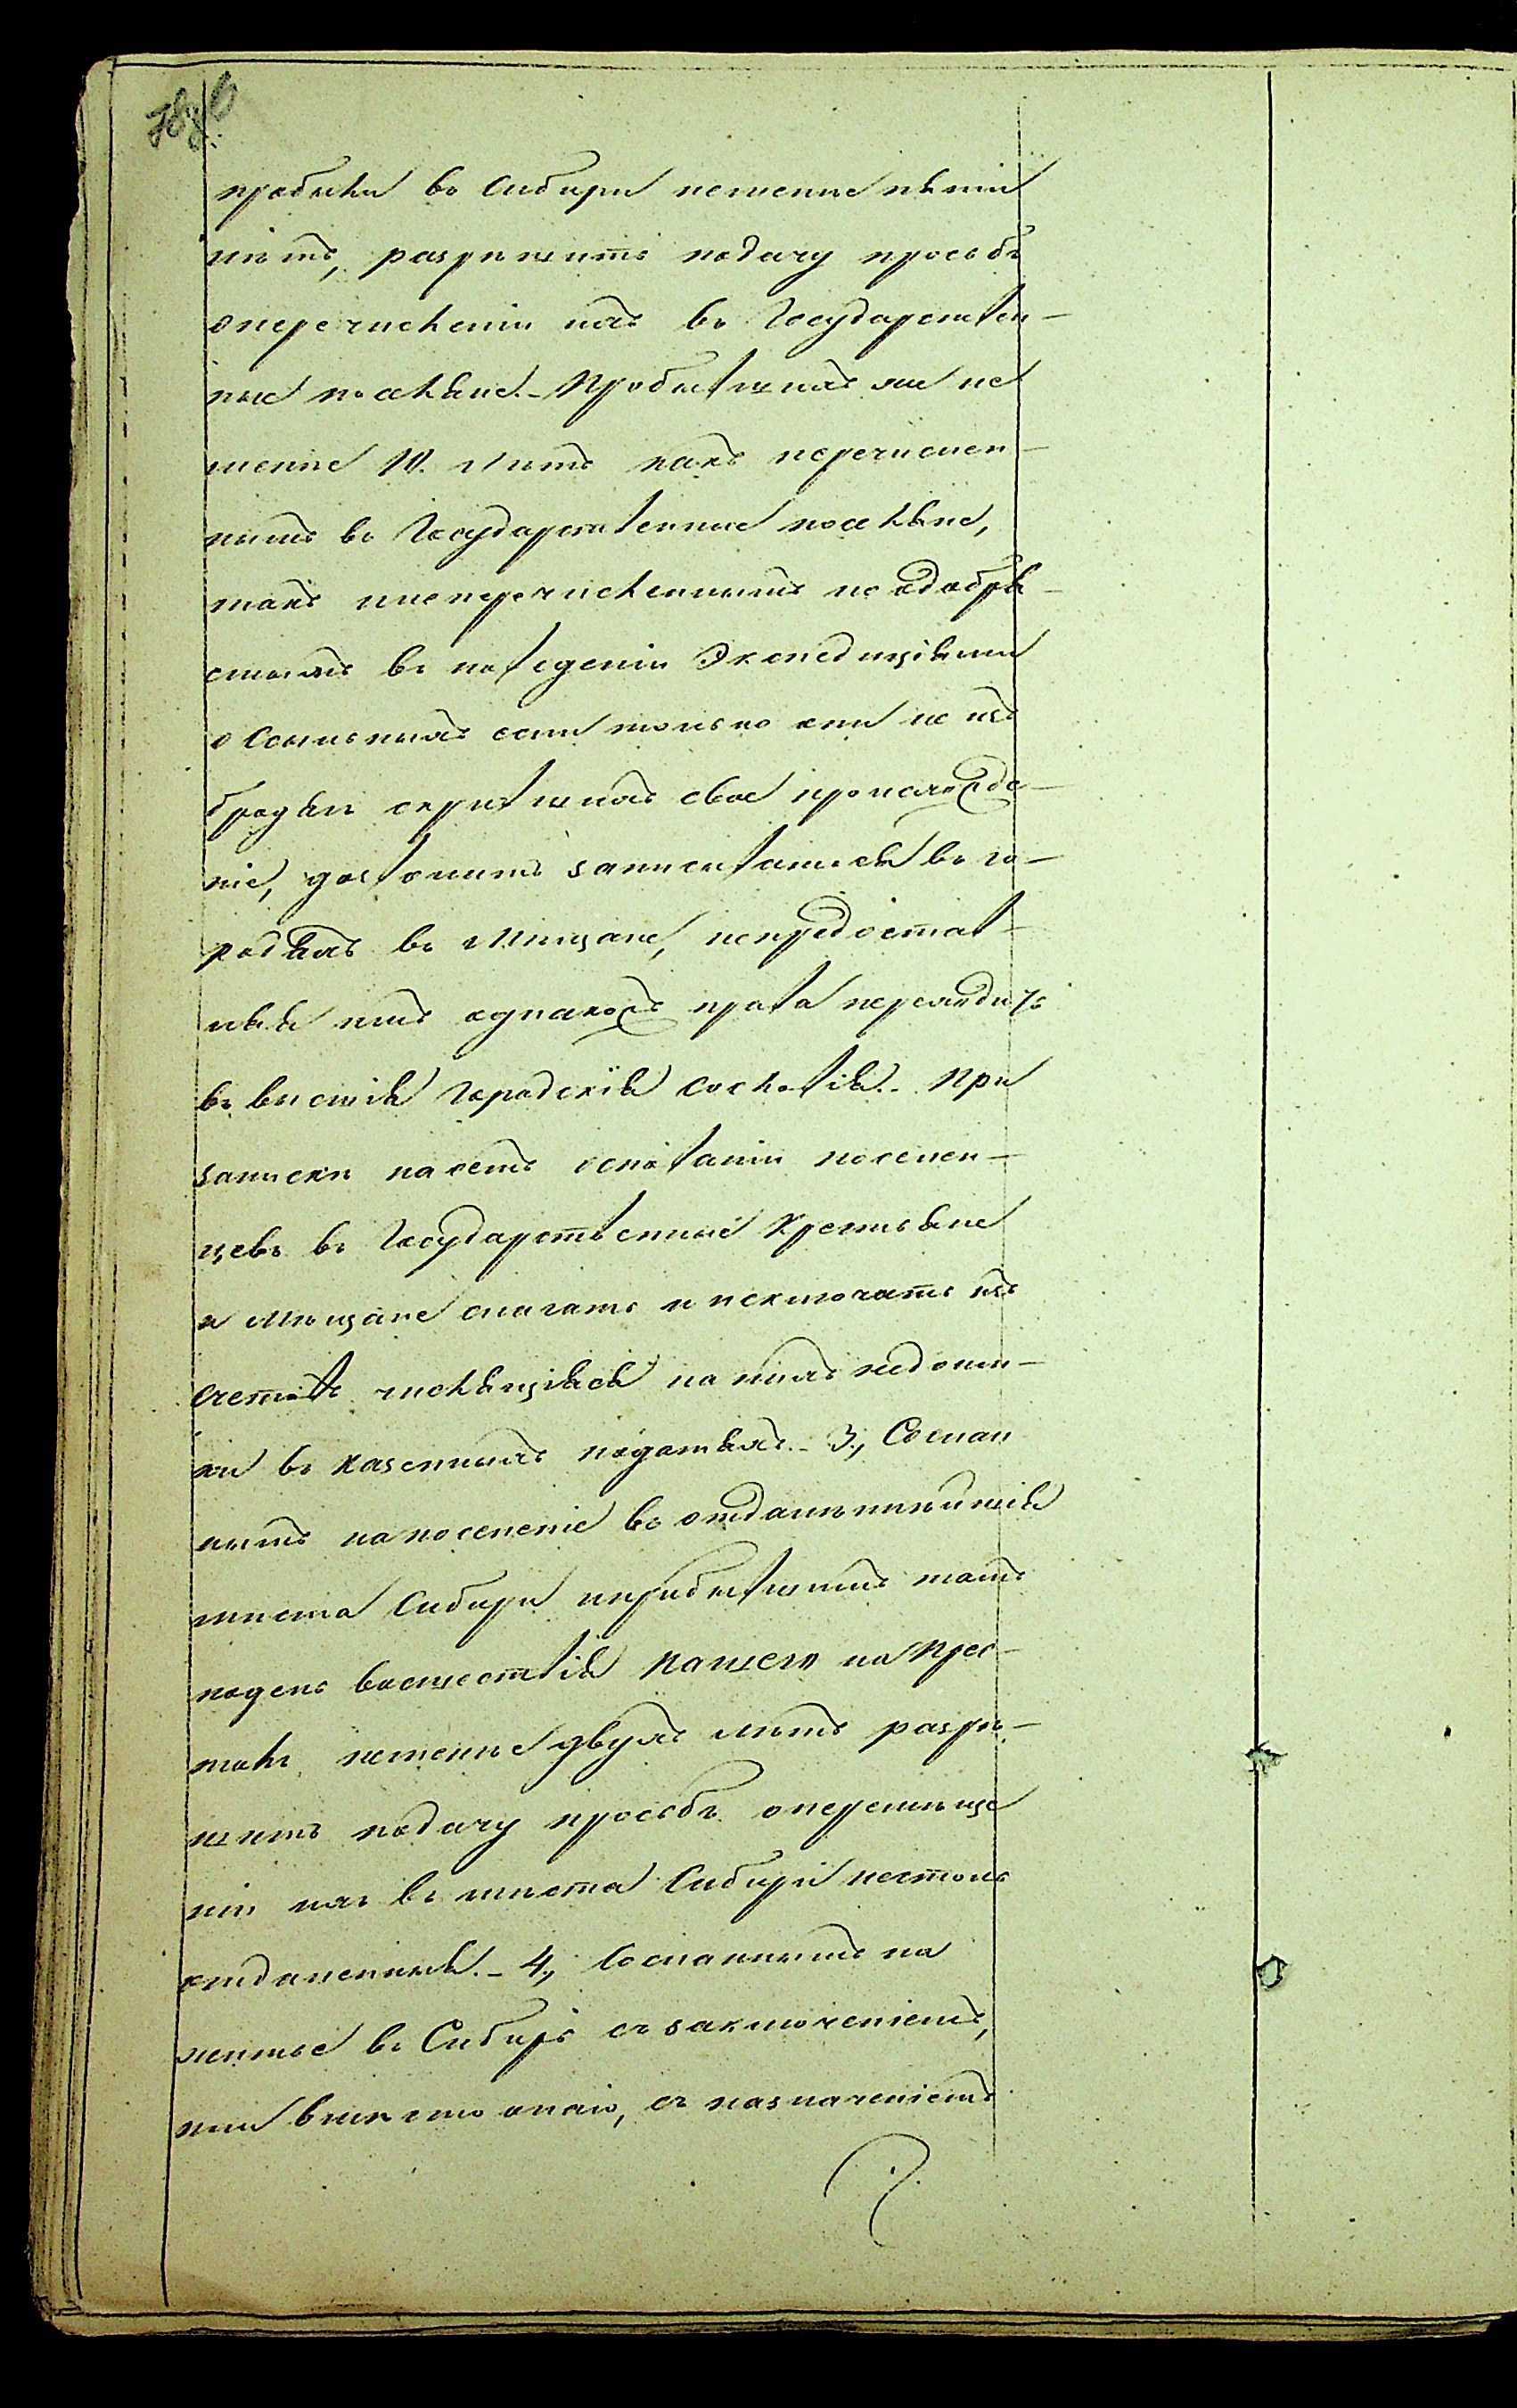 пробыли въ Сибири неменѣе пяти
лѣтъ, разрѣшить подачу просьбъ
оперечисленіи ихъ въ Государствен-
ные поселяне. - Пробывшихъ же не
менѣе 10. лѣтъ какъ перечислен-
нымъ въ Государственные поселяне,
такъ инеперечисленнымъ по одобре-
ніямъ въ поведеніи Экспедиціями
о ссыльныхъ если только они не изъ
бродягъ скрывшихъ свое происхожде-
ніе, дозволить записываться въ го-
родахъ въ Мѣщане, непредостав-
ляя имъ однакожъ права переходить
въ высшія Городскія сословія. - При
запискѣ на семъ основаніи поселен-
цевъ въ Государственные Крестьяне
и Мѣщане слагать и исключать изъ
счетовъ числящіяся на нихъ недоим-
ки въ казенныхъ податяхъ. - 3., Сослан
нымъ на поселеніе въ отдаленнѣйшія
мѣста Сибири ипробывшимъ тамъ
подень восшествія Нашего на Прес-
толъ неменѣе двухъ лѣтъ разрѣ-
шить подачу просьбъ оперемѣще
ніи ихъ въ мѣста Сибири нестоль
отдаленныя. - 4., Сосланнымъ на
житье въ Сибирь съ заключеніемъ,
или вмѣсто онаго, съ назначеніемъ